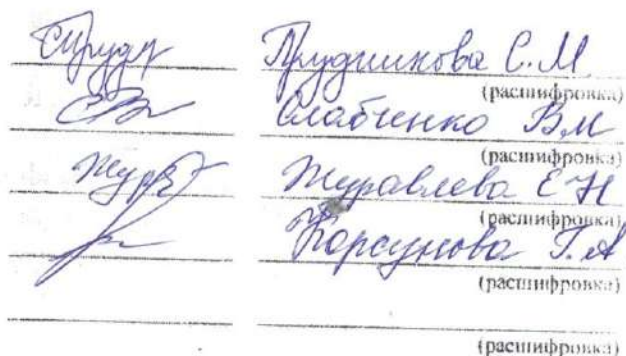 Прудникова С.М
(расшифровка)
Слабченко В.М
(расшифровка)
Журавлева Е Н
(расшифровка)
Корсунова Г.А
(расшифровка)
(расшифровка)